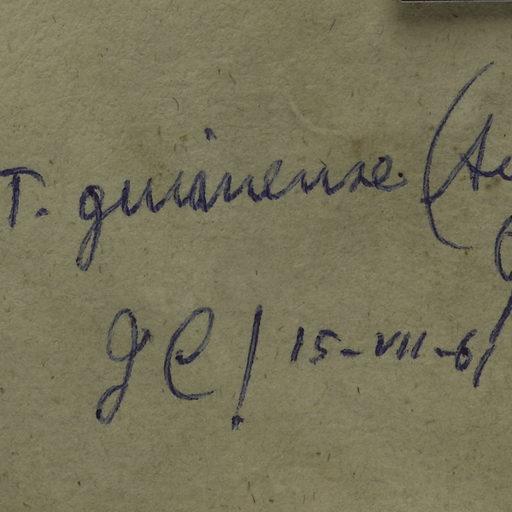 T. guineense (A
JC! 15-VII-61